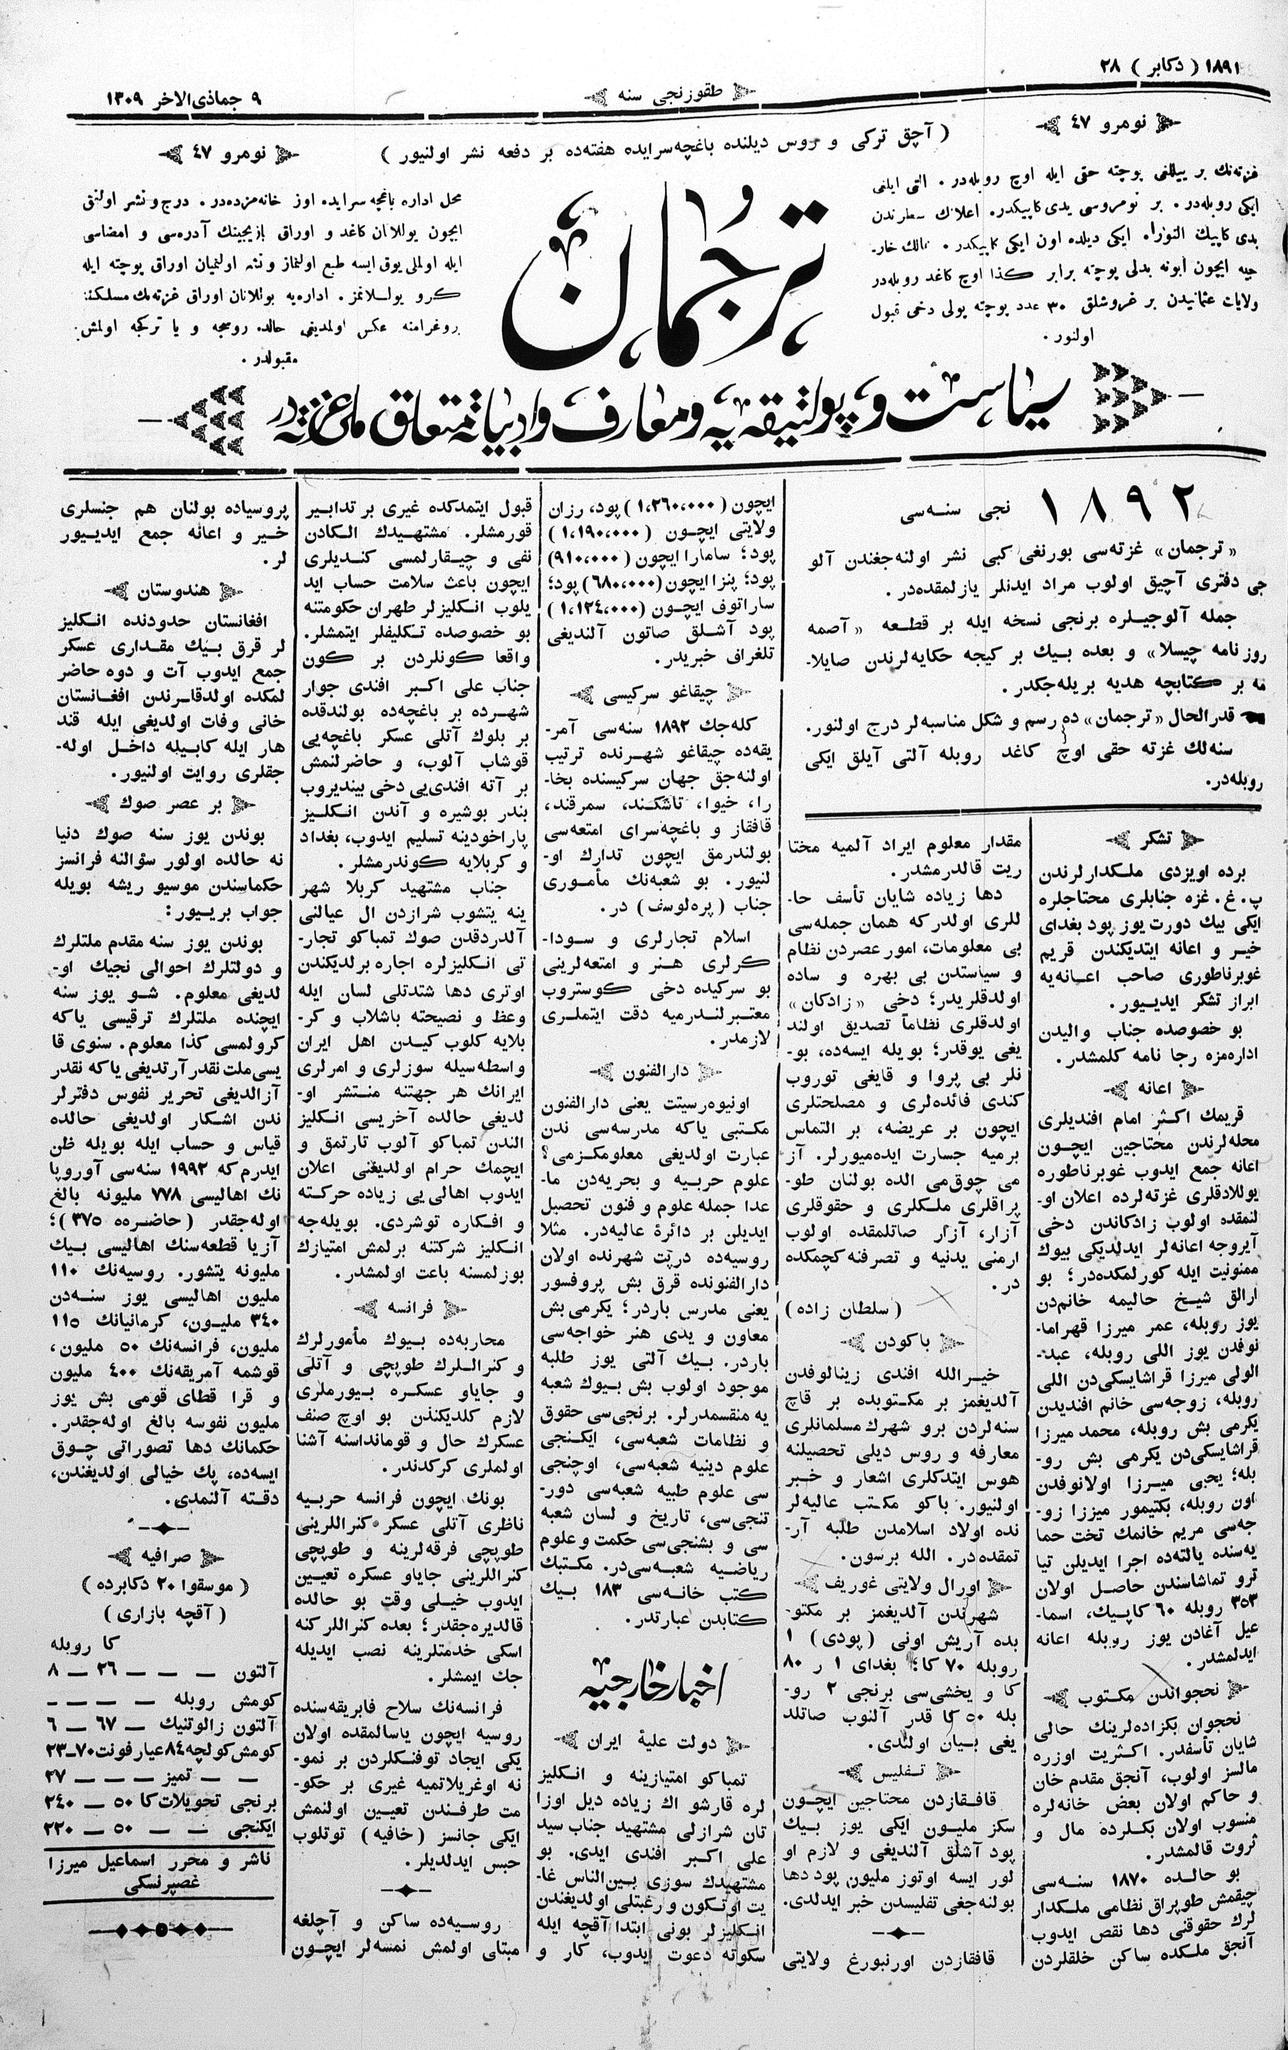 ١٨٩١ ( دكابر ) ٢٨
طقوزنجی سنه
٩ جماذی‌الاخر ١٣٠٩
نومرو ٤٧
( آچق تركی و روس دیلنده باغچه‌سرایده هفته‌ده بر دفعه نشر اولنیور )
نومرو ٤٧
غزته‌نك بر ییللغی پوچته حقی ایله اوچ روبله‌در. التی ایلغی
ایكی روبله‌در. بر نومروسی یدی كاپیكدر. اعلانك سطرندن
یدی كاپیك النورا. ایكی دیلده اون ایكی كاپیكدر. ممالك خار-
جیه ایچون ابونه بدلی پوچته برابر كذا اوچ كاغد روبله‌در
ولایات عثمانیدن بر غروشلق ٣٠ عدد پوچته پولی دخی قبول
اولنور.
ترجمان
محل اداره باغچه سرایده اوز خانه‌مزده‌در. درج و نشر اولنق
ایچون یوللانان كاغد و اوراق یازیجینك آدره‌سی و امضاسی
ایله اولملی یوق ایسه طبع اولنماز و نشر اولنمیان اوراق پوچته ایله
كرو یوللانمز. اداره‌یه یوللانان اوراق غزته‌مك مسلكنه
پروغرامنه عكس اولمدیغی حالده روسجه و یا تركجه اولمش
مقبولدر.
سیاست و پولتیقه‌یه و معارف و ادبیاته متعلق ملی غزته‌در
١٨٩٢ نجی سنه‌سی
«ترجمان» غزته‌سی بورنغی كبی نشر اولنه‌جغندن آلو
جی دفتری آچیق اولوب مراد ایدنلر یازلمقده‌در.
جمله آلوجیلره برنجی نسخه ایله بر قطعه «آصمه
روزنامه چیسلا» و بعده بیك بر كیجه حكایه‌لرندن صایلا-
نه بر كتابچه هدیه بریله‌جكدر.
قدرالحال «ترجمان» ده رسم و شكل مناسبه‌لر درج اولنور.
سنه‌لك غزته حقی اوچ كاغد روبله آلتی آیلق ایكی
روبله‌در.
تشكر
برده اویزدی ملكدارلرندن
پ. غ. غزه جنابلری محتاجلره
ایكی بیك دورت یوز پود بغدای
خیر و اعانه ایتدیكندن قریم
غوبرناطوری صاحب اعانه‌یه
ابراز تشكر ایدییور.
بو خصوصده جناب والیدن
اداره‌مزه رجا نامه كلمشدر.
اعانه
قریمك اكثر امام افندیلری
محله‌لرندن محتاجین ایچون
اعانه جمع ایدوب غوبرناطوره
یوللادقلری غزته‌لرده اعلان او-
لنمقده اولوب زادكاندن دخی
آیروجه اعانه‌لر ایدلدیكی بیوك
ممنونیت ایله كورلمكده‌در؛ بو
ارالق شیخ حالیمه خانم‌دن
یوز روبله، عمر میرزا قهراما-
نوفدن یوز اللی روبله، عبد-
الولی میرزا قراشایسكی‌دن اللی
روبله، زوجه‌سی خانم افندیدن
یكرمی بش روبله، محمد میرزا
قراشایسكی‌دن یكرمی بش رو-
بله؛ یحیی میرزا اولانوفدن
اون روبله، بكتیمور میرزا زو-
جه‌سی مریم خانمك تخت حما
یه‌سنده یالته‌ده اجرا ایدیلن تیا
ترو تماشاسندن حاصل اولان
٣٥٣ روبله ٦٠ كاپیك، اسما-
عیل آغادن یوز روبله اعانه
ایدلمشدر.
نحجواندن مكتوب
نحجوان بكزاده‌لرینك حالی
شایان تأسفدر. اكثریت اوزره
مالسز اولوب، آنجق مقدم خان
و حاكم اولان بعض خانه‌لره
منسوب اولان بكلرده مال و
ثروت قالمشدر.
بو حالده ١٨٧٠ سنه‌سی
چیقمش طوپراق نظامی ملكدار
لرك حقوقنی دها نقص ایدوب
آنجق ملكده ساكن خلقلردن
مقدار معلوم ایراد آلمیه مختا
ریت قالدرمشدر.
دها زیاده شایان تأسف حا-
للری اولدركه همان جمله‌سی
بی معلومات، امور عصردن نظام
و سیاستدن بی بهره و ساده
اولدقلریدر؛ دخی «زادكان»
اولدقلری نظاماً تصدیق اولند
یغی یوقدر؛ بویله ایسه‌ده، بو-
نلر بی پروا و قایغی توروب
كندی فائده‌لری و مصلحتلری
ایچون بر عریضه، بر التماس
برمیه جسارت ایده‌میورلر. آز
می چوق‌می الده بولنان طو-
پراقلری ملكلری و حقوقلری
آزار، آزار صاتلمقده اولوب
ارمنی یدنیه و تصرفنه كچمكده
در.
( سلطان زاده )
باكودن
خیرالله افندی زینالوفدن
آلدیغمز بر مكتوبده بر قاچ
سنه‌لردن برو شهرك مسلمانلری
معارفه و روس دیلی تحصیلنه
هوس ایتدكلری اشعار و خبر
اولنیور. باكو مكتب عالیه‌لر
نده اولاد اسلامدن طلبه آر-
تمقده‌در. الله برسون.
اورال ولایتی غوریف
شهرندن آلدیغمز بر مكتو-
بده آریش اونی (پودی) ١
روبله ٧٠ كا؛ بغدای ١ ر ٨٠
كا و یخشی‌سی برنجی ٢ رو-
بله ٥٠ كا قدر آلنوب صاتلد
یغی بیان اولندی.
تفلیس
قافقازدن محتاجین ایچون
سكز ملیون ایكی یوز بیك
پود آشلق آلندیغی و لازم او
لور ایسه اوتوز ملیون پود دها
بولنه‌جغی تفلیسدن خبر ایدلدی.
قافقازدن اورنبورغ ولایتی
ایچون (١،٢٦٠،٠٠٠) پود، رزان
ولایتی ایچون (١،١٩٠،٠٠٠)
پود؛ سامارا ایچون (٩١٠،٠٠٠)
پود؛ پنزا ایچون (٦٨٠،٠٠٠) پود؛
ساراتوف ایچون (١،١٢٤،٠٠٠)
پود آشلق صاتون آلندیغی
تلغراف خبریدر.
چیقاغو سركیسی
كله‌جك ١٨٩٢ سنه‌سی آمر-
یقه‌ده چیقاغو شهرنده ترتیب
اولنه‌جق جهان سركیسنده بخا-
را، خیوا، تاشكند، سمرقند،
قافقاز و باغچه‌سرای امتعه‌سی
بولندرمق ایچون تدارك او-
لنیور. بو شعبه‌نك مأموری
جناب (پره‌لوسف) در.
اسلام تجارلری و سودا-
كرلری هنر و امتعه‌لرینی
بو سركیده دخی كوستروب
معتبرلندرمیه دقت ایتملری
لازمدر.
دارالفنون
اونیوه‌رسیتت یعنی دارالفنون
مكتبی یاكه مدرسه‌سی ندن
عبارت اولدیغی معلومكزمی؟
علوم حربیه و بحریه‌دن ما-
عدا جمله علوم و فنون تحصیل
ایدیلن بر دائرهٔ عالیه‌در. مثلا
روسیه‌ده درپت شهرنده اولان
دارالفنونده قرق بش پروفسور
یعنی مدرس باردر؛ یكرمی بش
معاون و یدی هنر خواجه‌سی
باردر. بیك آلتی یوز طلبه
موجود اولوب بش بیوك شعبه
یه منقسمدرلر. برنجی‌سی حقوق
و نظامات شعبه‌سی، ایكنجی
علوم دینیه شعبه‌سی، اوچنجی
سی علوم طبیه شعبه‌سی دور-
تنجی‌سی، تاریخ و لسان شعبه
سی و بشنجی‌سی حكمت و علوم
ریاضیه شعبه‌سی‌در. مكتبك
كتب خانه‌سی ١٨٣ بیك
كتابدن عبارتدر.
اخبار خارجیه
دولت علیهٔ ایران
تمباكو امتیازینه و انكلیز
لره قارشو اك زیاده دیل اوزا
تان شرازلی مشتهید جناب سید
علی اكبر افندی ایدی. بو
مشتهیدك سوزی بین‌الناس غا-
یت اوتكون و رغبتلی اولدیغندن
انكلیزلر بونی ابتدا آقچه ایله
سكوته دعوت ایدوب، كار و
قبول ایتمدكده غیری بر تدابیر
قورمشلر. مشتهیدك الكادن
نفی و چیقارلمسی كندیلری
ایچون باعث سلامت حساب اید
یلوب انكلیزلر طهران حكومتنه
بو خصوصده تكلیفلر ایتمشلر.
واقعا كونلردن بر كون
جناب علی اكبر افندی جوار
شهرده بر باغچه‌ده بولندقده
بر بلوك آتلی عسكر باغچه‌یی
قوشاب آلوب، و حاضرلنمش
بر آته افندی‌یی دخی بیندیروب
بندر بوشیره و آندن انكلیز
پاراخودینه تسلیم ایدوب، بغداد
و كربلایه كوندرمشلر.
جناب مشتهید كربلا شهر
ینه یتشوب شرازدن ال عیالنی
آلدردقدن صوك تمباكو تجار-
تی انكلیزلره اجاره برلدیكندن
اوتری دها شدتلی لسان ایله
وعظ و نصیحته باشلاب و كر-
بلایه كلوب كیدن اهل ایران
واسطه‌سیله سوزلری و امرلری
ایرانك هر جهتنه منتشر او-
لدیغی حالده آخریسی انكلیز
الندن تمباكو آلوب تارتمق و
ایچمك حرام اولدیغنی اعلان
ایدوب اهالی‌یی زیاده حركته
و افكاره توشردی. بویله‌جه
انكلیز شركتنه برلمش امتیازك
بوزلمسنه باعث اولمشدر.
فرانسه
محاربه‌ده بیوك مأمورلرك
و كنراللرك طوپچی و آتلی
و جایاو عسكره بیورملری
لازم كلدیكندن بو اوچ صنف
عسكرك حال و قوماندا‌سنه آشنا
اولملری كركدندر.
بونك ایچون فرانسه حربیه
ناظری آتلی عسكر كنراللرینی
طوپچی فرقه‌لرینه و طوپچی
كنراللرینی جایاو عسكره تعیین
ایدوب خیلی وقت بو حالده
قالدیره‌جقدر؛ بعده كنراللر كنه
اسكی خدمتلرینه نصب ایدیله
جك ایمشلر.
فرانسه‌نك سلاح فابریقه‌سنده
روسیه ایچون یاسالمقده اولان
یكی ایجاد توفنكلردن بر نمو-
نه اوغریلاتمیه غیری بر حكو-
مت طرفندن تعیین اولنمش
ایكی جانسز (خافیه) توتلوب
حبس ایدلدیلر.
روسیه‌ده ساكن و آچلغه
مبتای اولمش نمسه‌لر ایچون
پروسیاده بولنان هم جنسلری
خیر و اعانه جمع ایدییور
لر.
هندوستان
افغانستان حدودنده انكلیز
لر قرق بیك مقداری عسكر
جمع ایدوب آت و دوه حاضر
لمكده اولدقلرندن افغانستان
خانی وفات اولدیغی ایله قند
هار ایله كابیله داخل اوله-
جقلری روایت اولنیور.
بر عصر صوك
بوندن یوز سنه صوك دنیا
نه حالده اولور سؤالنه فرانسز
حكماسندن موسیو ریشه بویله
جواب بریییور:
بوندن یوز سنه مقدم ملتلرك
و دولتلرك احوالی نجیك او-
لدیغی معلوم. شو یوز سنه
ایچنده ملتلرك ترقیسی یاكه
كرولمسی كذا معلوم. سنوی قا
یسی ملت نقدر آرتدیغی یاكه نقدر
آزالدیغی تحریر نفوس دفترلر
ندن اشكار اولدیغی حالده
قیاس و حساب ایله بویله ظن
ایدرم كه ١٩٩٢ سنه‌سی آوروپا
نك اهالیسی ٧٧٨ ملیونه بالغ
اوله‌جقدر (حاضرده ٣٧٥)؛
آزیا قطعه‌سنك اهالیسی بیك
ملیونه یتشور. روسیه‌نك ١١٠
ملیون اهالیسی یوز سنه‌دن
٣٤٠ ملیون، كرمانیانك ١١٥
ملیون، فرانسه‌نك ٥٠ ملیون،
قوشمه آمریقه‌نك ٤٠٠ ملیون
و قرا قطای قومی بش یوز
ملیون نفوسه بالغ اوله‌جقدر.
حكمانك دها تصوراتی چوق
ایسه‌ده، پك خیالی اولدیغندن،
دقته آلنمدی.
صرافیه
( موسقوا ٢٠ دكابرده )
( آقچه بازاری )
كا روبله
آلتون — — — ٢٦ — ٨
كومش روبله — — — -
آلتون زالوتنیك — ٦٧ — ٦
كومش كولچه ٨٤ عیار فونت ٧٠—٢٣
— — تمیز — — — ٢٧
برنجی تحویلات كا ٥٠ — ٢٤٠
ایكنجی — — ٥٠ — ٢٢٠
ناشر و محرر اسماعیل میرزا
غصپرنسكی